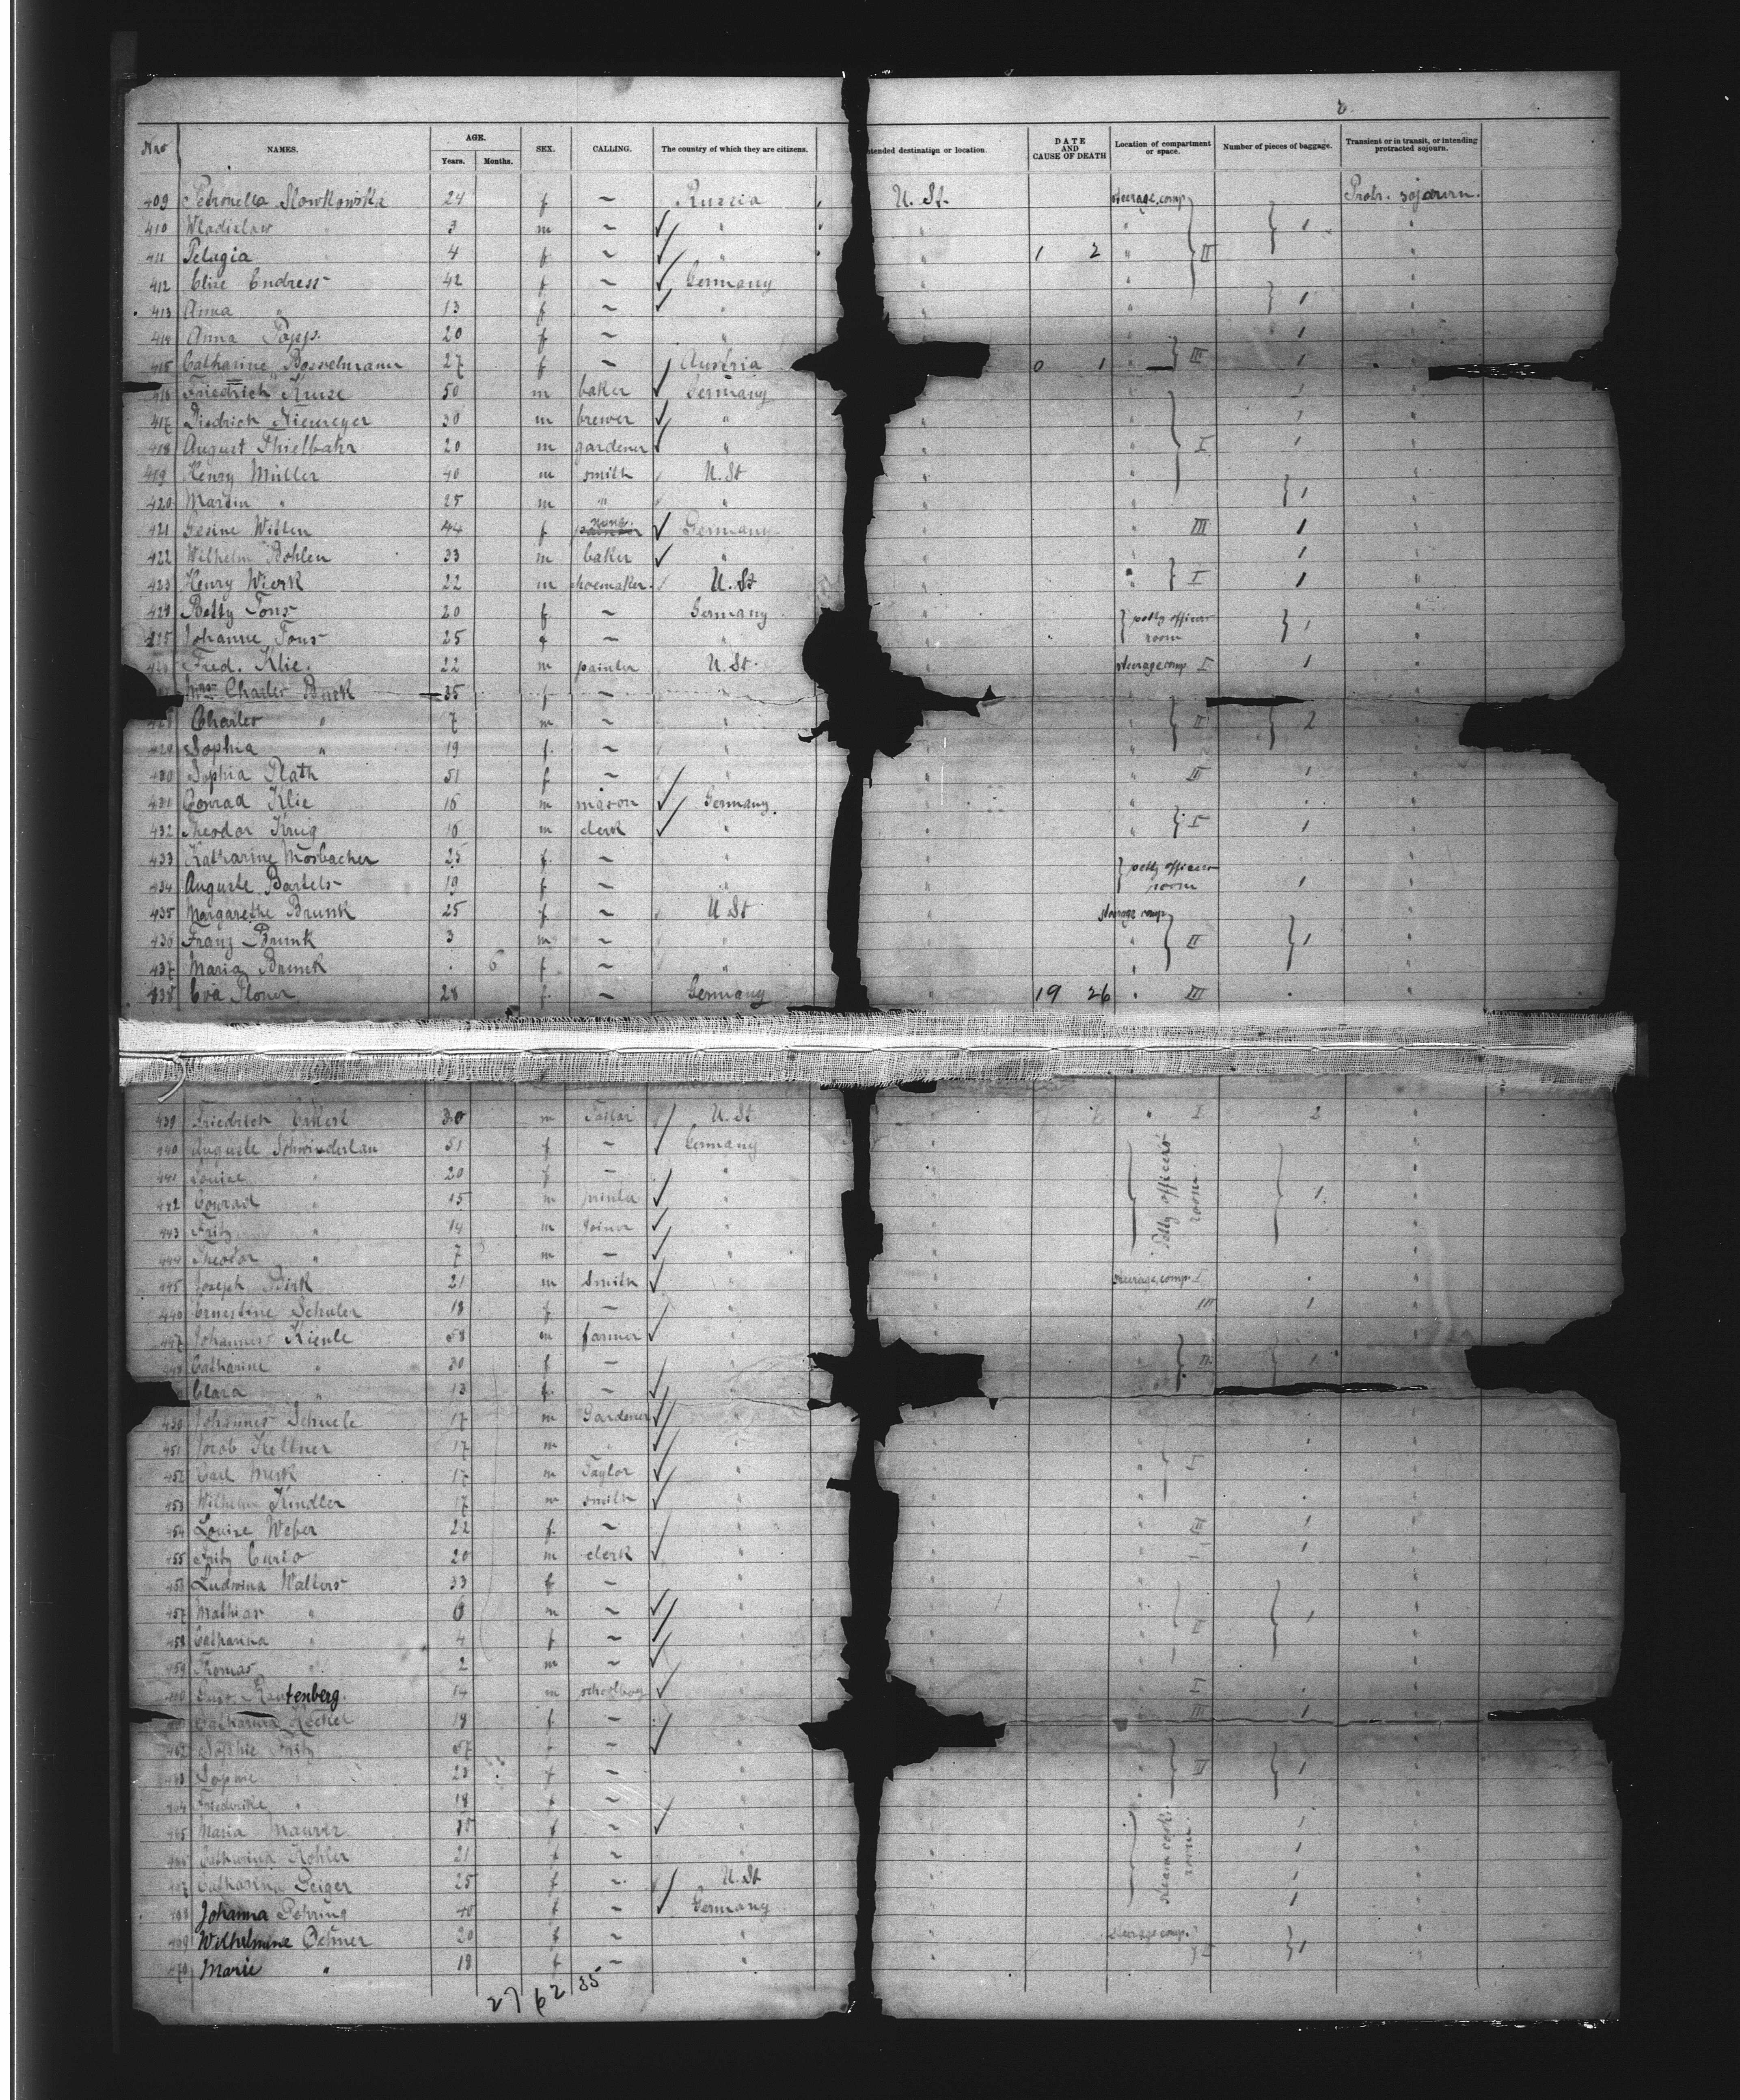 2.
Nro NAMES. AGE. Years. Months. SEX. CALLING. The country of which they are citizens. ntended destination or location. DATE AND CAUSE OF DEATH Location of compartment or space. Number of pieces of baggage. Transient or in transit, or intending protracted sojourn.
409 Petronella Slowkowska 24 f ~ Russia U. St. steerage comp. Protr. sojourn.
410 Wladislaw " 3 m ~ " " " 1 "
411 Pelagia " 4 f ~ " " 1 2 " II "
412 Elise Endress 42 f ~ Germany " " "
413 Anna " 13 f ~ " " " 1 "
414 Anna Popp. 20 f ~ " " " 1 "
415 Catharine Bosselmann 27 f ~ Austria 0 1 " III 1 "
416 Friedrich Kruse 50 m baker Germany " " 1 "
417 Diedrich Niemeyer 30 m brewer " " " 1 "
418 August Thielbahr 20 m gardener " " " I 1 "
419 Henry Müller 40 m smith U. St " " "
420 Martin " 25 m " " " " 1 "
421 Gesine Witten 44 f none. Germany " " III 1 "
422 Wilhelm Bohlen 33 m baker " " " 1 "
423 Henry Wierk 22 m shoemaker. U. St " " I 1 "
424 Betty Tons 20 f ~ Germany " petty officers room 1 "
425 Johanne Tons 25 f ~ " " "
426 Fred. Klie. 22 m painter U. St. " steerage comp. I 1 "
Mrs Charles Buck 35 f ~ " "
428 Charles " 7 m ~ " " " II 2 "
429 Sophia " 19 f. ~ " " " "
430 Sophia Plath 51 f ~ " " " III 1 "
431 Conrad Klie 16 m mason Germany. " " "
432 Theodor Krug 16 m clerk " " " I 1 "
433 Katharine Morbacher 25 f. ~ " " petty officers room "
434 Auguste Bartels 19 f ~ " " 1 "
435 Margarethe Brunk 25 f ~ U St " steerage comp. "
436 Franz Brunk 3 m ~ " " " II 1 "
437 Maria Brunk . 6 f ~ " " " "
438 Eva Ploner 28 f. ~ Germany " 19 26 " III "
439 Friedrich Eckert 30 m Tailor U. St. " " I 2 "
440 Auguste Schwinderlau 51 f ~ Germany " Petty officers' room. "
441 Louise " 20 f ~ " " "
442 Conrad " 15 m printer " " 1. "
443 Fritz " 14 m Joiner " " "
444 Theodor " 7 m ~ " " "
445 Joseph Birk 21 m Smith " " steerage comp. I "
446 Ernestine Schuler 18 f ~ " " III 1 "
447 Johannes Kienle 58 m farmer " " "
448 Catharine " 30 f ~ " II 1 "
Clara " 13 f. ~ " "
450 Johannes Schuele 17 m Gardener " " "
451 Jacob Kellner 17 m " " " "
452 Carl Merk 17 m Taylor " " " I "
453 Wilhelm Kindler 17 m smith " " " "
454 Louise Weber 22 f. ~ " " " III 1 "
455 Fritz Curio 20 m clerk " " " I 1 "
456 Ludwina Walters 33 f ~ " " "
457 Mathias " 6 m ~ " " 1 "
458 Catharina " 4 f ~ " " II "
459 Thomas " 2 m ~ " " "
Rautenberg. 14 m schoolboy " " I "
Catharina Keckel 18 f ~ " III 1 "
462 Sophie Fritz 57 f ~ " "
463 Sophie " 23 f ~ " " III 1 "
464 Friederike " 18 f ~ " " "
465 Maria Maurer f ~ " " steam cooks room. 1 "
466 Catharina Kohler 21 f ~ " " 1 "
467 Catharina Geiger 25 f ~ U. St " 1 "
468 Johanna Gehring 40 f ~ Germany " 1 "
469 Wilhelmine Oehner 20 f ~ " " steerage comp. 1 "
470 Marie " 18 f ~ " " "
27 62 35